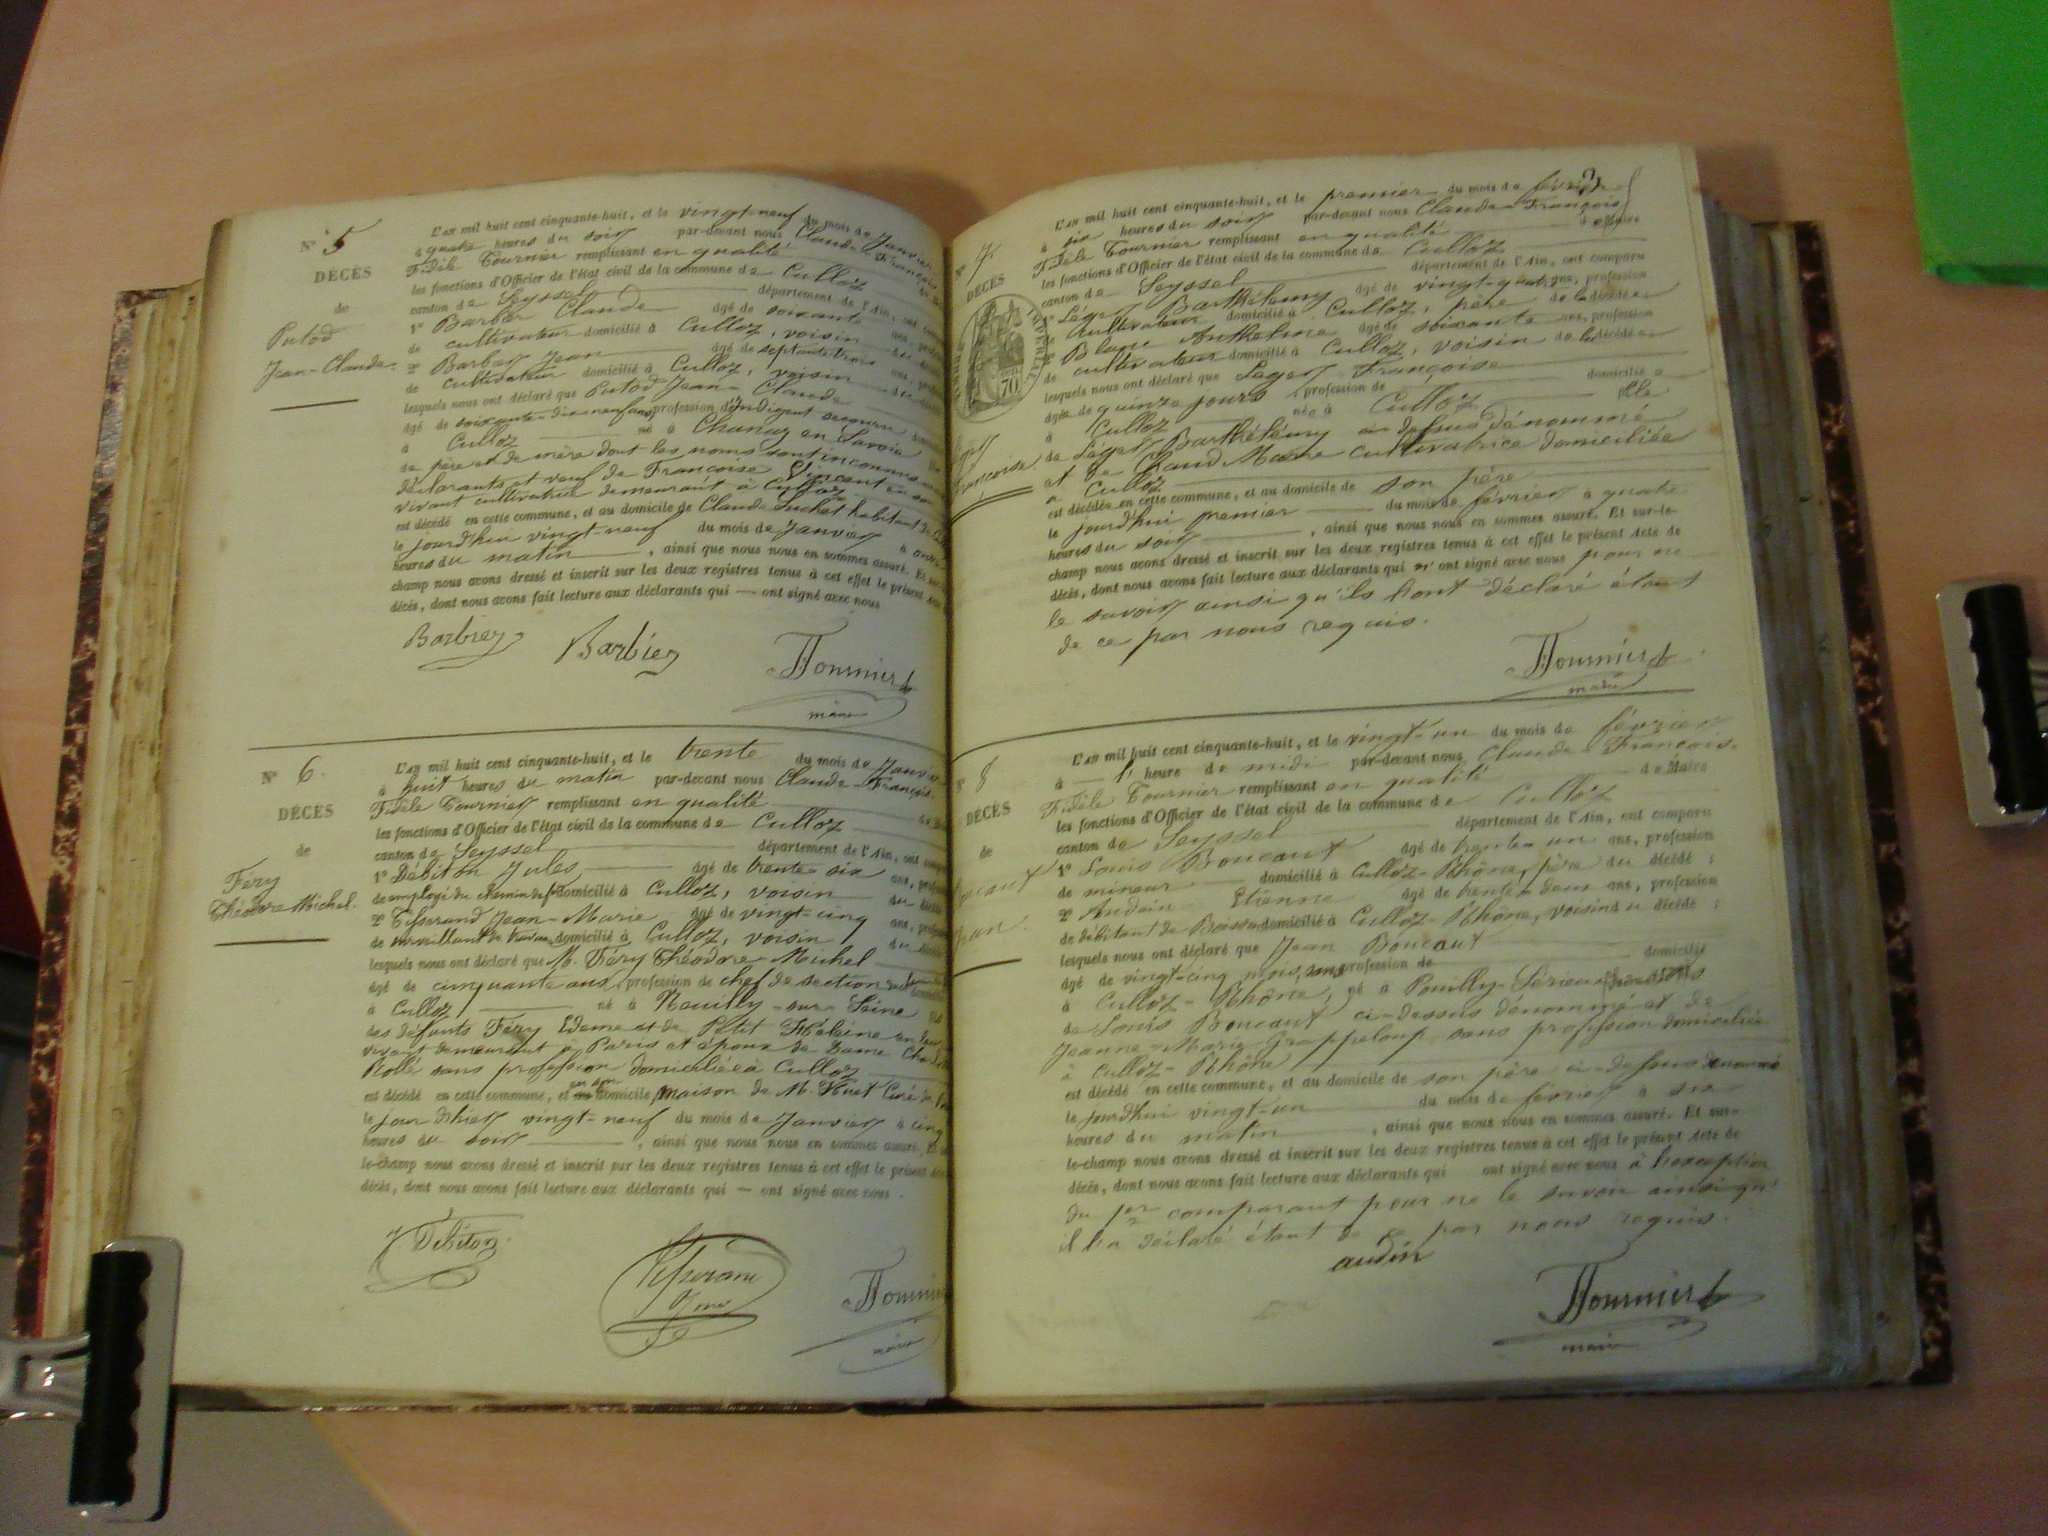 N° 5
DÉCÈS
de
Putod
Jean-Claude
L'AN mil huit cent cinquante-huit, et le vingt-neuf du mois de Janvier
à quatre heures du soir par-devant nous Claude-François
Fidèle Tournier remplissant en qualité
les fonctions d'Officier de l'état civil de la commune de Culloz
canton de Seyssel département de l'Ain, ont
1° Barbier Claude âgé de soixante ans,
de cultivateur domicilié à Culloz, voisin du
2° Barbier Jean âgé de septante trois ans,
de cultivateur domicilié à Culloz, voisin du
lesquels nous ont déclaré que Putod Jean-Claude
âgé de soixante-dix-neuf ans profession d'Indigent
à Culloz né à Chanaz en Savoie
de père et de mère dont les noms sont inconnus
déclarants et veuf de Françoise Vincent en son
vivant cultivatrice demeurant à Culloz
est décédé en cette commune, et au domicile de Claude Suchet habitant
le jourd'hui vingt-neuf du mois de Janvier à onze
heures du matin, ainsi que nous nous en sommes assuré. Et
champ nous avons dressé et inscrit sur les deux registres tenus à cet effet le présent
décès, dont nous avons fait lecture aux déclarants qui — ont signé avec nous
Barbier Barbier Tournier
maire
N° 6.
DÉCÈS
de
Fery
Théodore Michel.
L'AN mil huit cent cinquante-huit, et le trente du mois de Janvier
à huit heures du matin par-devant nous Claude-François
Fidèle Tournier remplissant en qualité
les fonctions d'Officier de l'état civil de la commune de Culloz
canton de Seyssel département de l'Ain, ont
1° Débiton Jules âgé de trente six ans,
de employé du chemin de fer domicilié à Culloz, voisin du
2° Jean-Marie âgé de vingt-cinq ans,
de surveillant de travaux domicilié à Culloz, voisin du
lesquels nous ont déclaré que M. Féry Théodore-Michel
âgé de cinquante ans, profession de chef de section
à Culloz né à Neuilly-sur-Seine
des défunts Féry Edeme et de Petit Hélène en leur
vivant demeurant à Paris et époux de Dame
sans profession domiciliée à Culloz
est décédé en cette commune, et domicile, maison de M. Huet Curé
le jour d'hier vingt-neuf du mois de Janvier à cinq
heures du soir, ainsi que nous nous en sommes assuré. Et
le-champ nous avons dressé et inscrit sur les deux registres tenus à cet effet le présent
décès, dont nous avons fait lecture aux déclarants qui — ont signé avec nous.
J Débiton Tournier
maire
N° 7.
DÉCÈS
Françoise
L'AN mil huit cent cinquante-huit, et le premier du mois de février
à six heures du soir par-devant nous Claude-François
Fidèle Tournier remplissant en qualité
les fonctions d'Officier de l'état civil de la commune de Culloz
canton de Seyssel département de l'Ain, ont comparu
1° Léger Barthélemy âgé de vingt-quatre ans, profession
cultivateur domicilié à Culloz, père de la décédée
2° Blanc Anthelme âgé de soixante ans, profession
de cultivateur domicilié à Culloz, voisin de la décédée
lesquels nous ont déclaré que Léger Françoise
âgée de quinze jours, profession de domicilié
à Culloz née à Culloz fille
de Léger Barthélémy ci-dessus dénommé
et de Chaud Marie cultivatrice domiciliée
à Culloz
est décédée en cette commune, et au domicile de son père
le jourd'hui premier du mois de février à quatre
heures du soir, ainsi que nous nous en sommes assuré. Et sur-le-
champ nous avons dressé et inscrit sur les deux registres tenus à cet effet le présent Acte de
décès, dont nous avons fait lecture aux déclarants qui n'ont signé avec nous pour ne
le savoir ainsi qu'ils l'ont déclaré étant
de ce par nous requis.
Tournier
maire
N° 8
DÉCÈS
de
L'AN mil huit cent cinquante-huit, et le vingt-un du mois de février
à 1 heure de midi par-devant nous Claude-François
Fidèle Tournier remplissant en qualité de Maire
les fonctions d'Officier de l'état civil de la commune de Culloz
canton de Seyssel département de l'Ain, ont comparu
1° Louis Boucaut âgé de trente-un ans, profession
de mineur domicilié à Culloz-Rhône, père du décédé;
2° Audain Etienne âgé de trente-deux ans, profession
de débitant de Boisson domicilié à Culloz-Rhône, voisin du décédé;
lesquels nous ont déclaré que Jean Boucaut
âgé de vingt-cinq mois, sans profession de domicilié
à Culloz-Rhône, né à Pouilly
de Louis Boucaut ci-dessus dénommé et de
Jeanne-Marie Grappeloup sans profession domiciliée
à Culloz-Rhône
est décédé en cette commune, et au domicile de son père ci-dessus dénommé
le jourd'hui vingt-un du mois de février à six
heures du matin, ainsi que nous nous en sommes assuré. Et sur-
le-champ nous avons dressé et inscrit sur les deux registres tenus à cet effet le présent Acte de
décès, dont nous avons fait lecture aux déclarants qui ont signé avec nous à l'exception
du 1er comparant pour ne le savoir ainsi qu'
il l'a déclaré étant de ce par nous requis.
audin
Tournier
maire